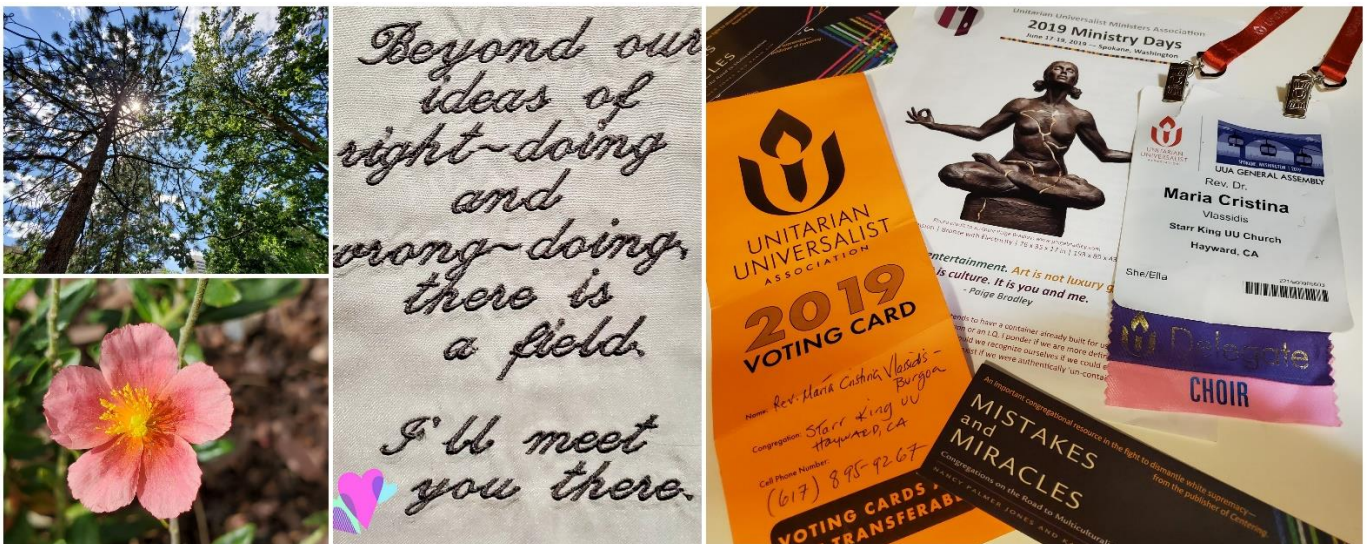 Beyond our
ideas of
right~doing
and
wrong~doing,
there is
a field.
I'll meet
you there.
Unitarian Universalist Ministers Association
2019 Ministry Days
June 17-19, 2019 — Spokane, Washington
Bronze with Electricity
entertainment. Art is not luxury
is culture. It is you and me.
- Paige Bradley
UNITARIAN
UNIVERSALIST
ASSOCIATION
2019
VOTING CARD
Name: Rev. María Cristina Vlassidis-
Burgoa
Congregation: Starr King UU
HAYWARD, CA
Cell Phone Number:
(617) 895-9267
VOTING CARDS
TRANSFERABLE
UNITARIAN
UNIVERSALIST
UUA GENERAL ASSEMBLY
Rev. Dr.
Maria Cristina
Vlassidis
Starr King UU Church
Hayward, CA
She/Ella
Delegate
CHOIR
An important congregational resource in the fight to dismantle white supremacy—
from the publisher of Centering.
MISTAKES
and
MIRACLES
Congregations on the Road to Multiculturali
NANCY PALMER JONES AND